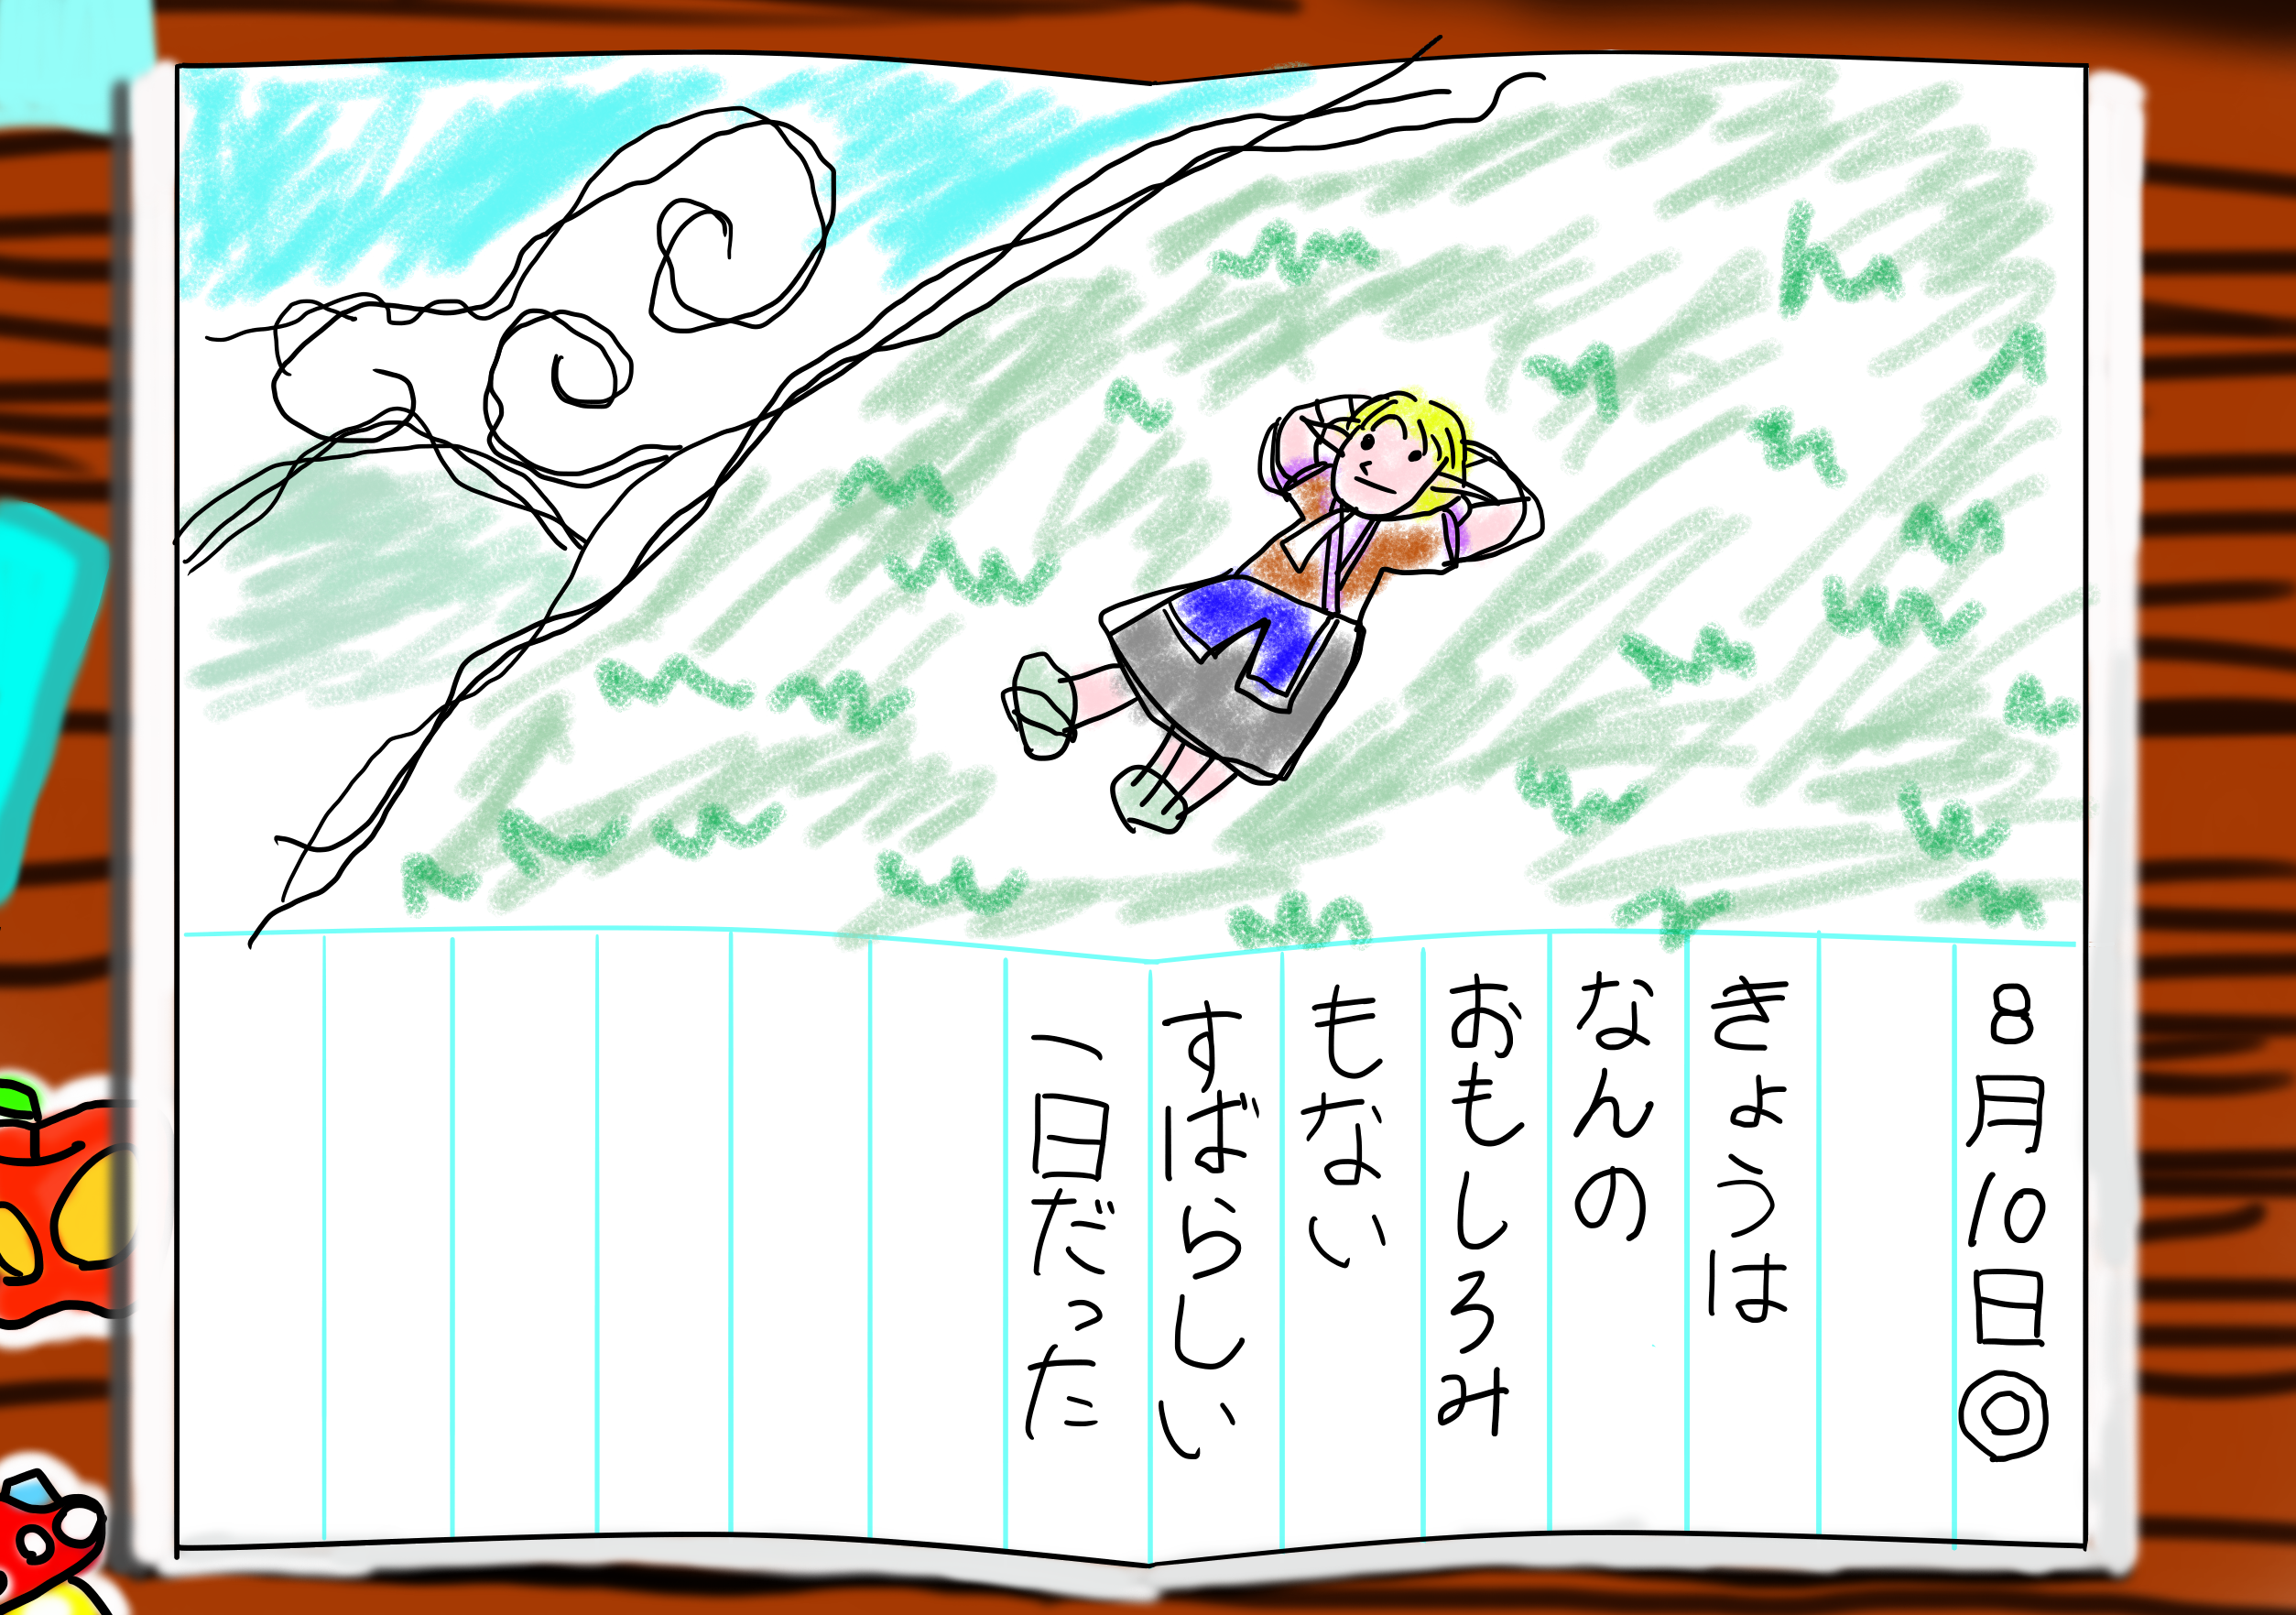 8月10日◎
きょうは
なんの
おもしろみ
もない
すばらしい
一日だった